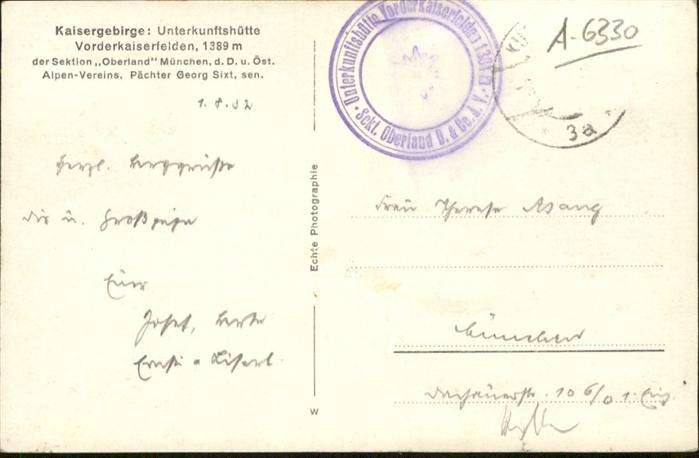 Kaisergebirge: Unterkunftshütte
Vorderkaiserfelden, 1389 m
der Sektion „Oberland" München, d. D. u. Öst.
Alpen-Vereins. Pächter Georg Sixt, sen.
1.8.32
Herzl. Berggrüße
Euer
Josef,
Echte Photographie
W
Unterkunftshütte Vorderkaiserfelden 1389 m
Sekt. Oberland D. & Oe. A. V.
A-6330
3a
Frau Therese Asang
München
Dachauerstr. 106/0 1. Eing.